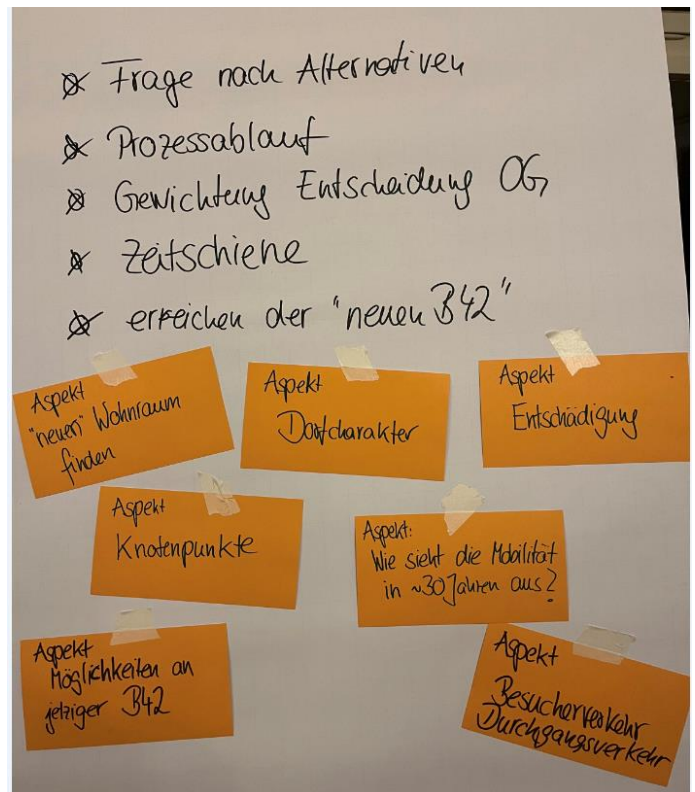 Frage nach Alternativen
Prozessablauf
Gewichtung Entscheidung OG,
Zeitschiene
erreichen der "neuen B42"
Aspekt
"neuen" Wohnraum
finden
Aspekt
Dorfcharakter
Aspekt
Entschädigung
Aspekt
Knotenpunkte
Aspekt:
Wie sieht die Mobilität
in ~30 Jahren aus?
Aspekt
Möglichkeiten an
jetziger B42
Aspekt
Besucherverkehr
Durchgangsverkehr